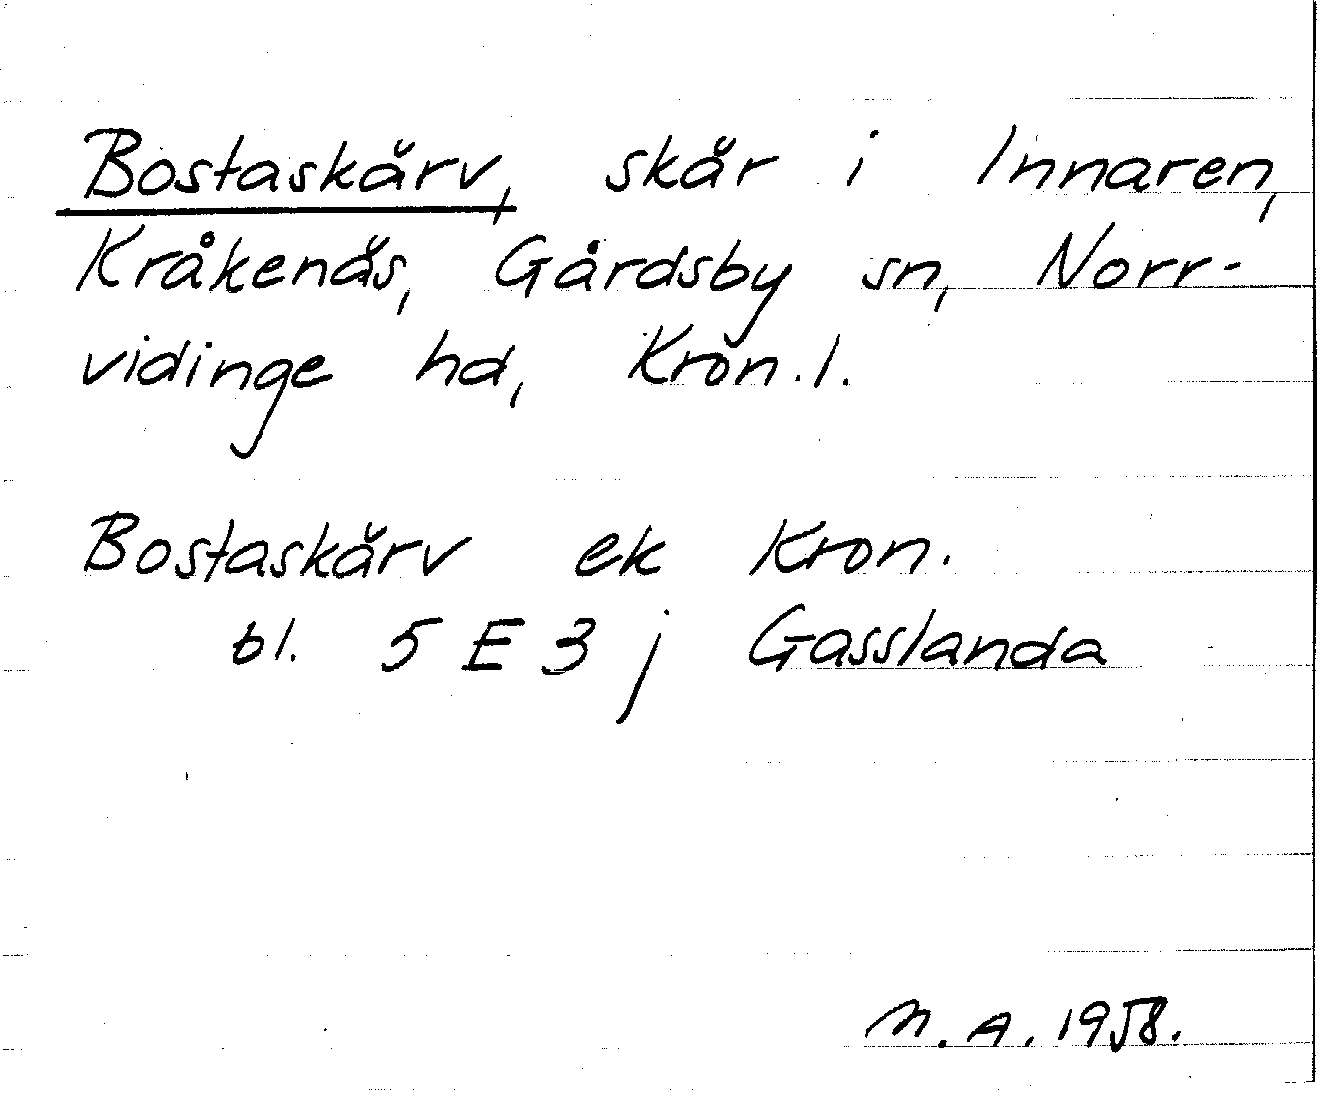 Bostaskärv, skär i Innaren,
Kråkenäs, Gårdsby sn, Norr-
vidinge hd, Kron.l.
Bostaskärv ek Kron.
bl. 5 E 3 j Gasslanda
M.A. 1958.